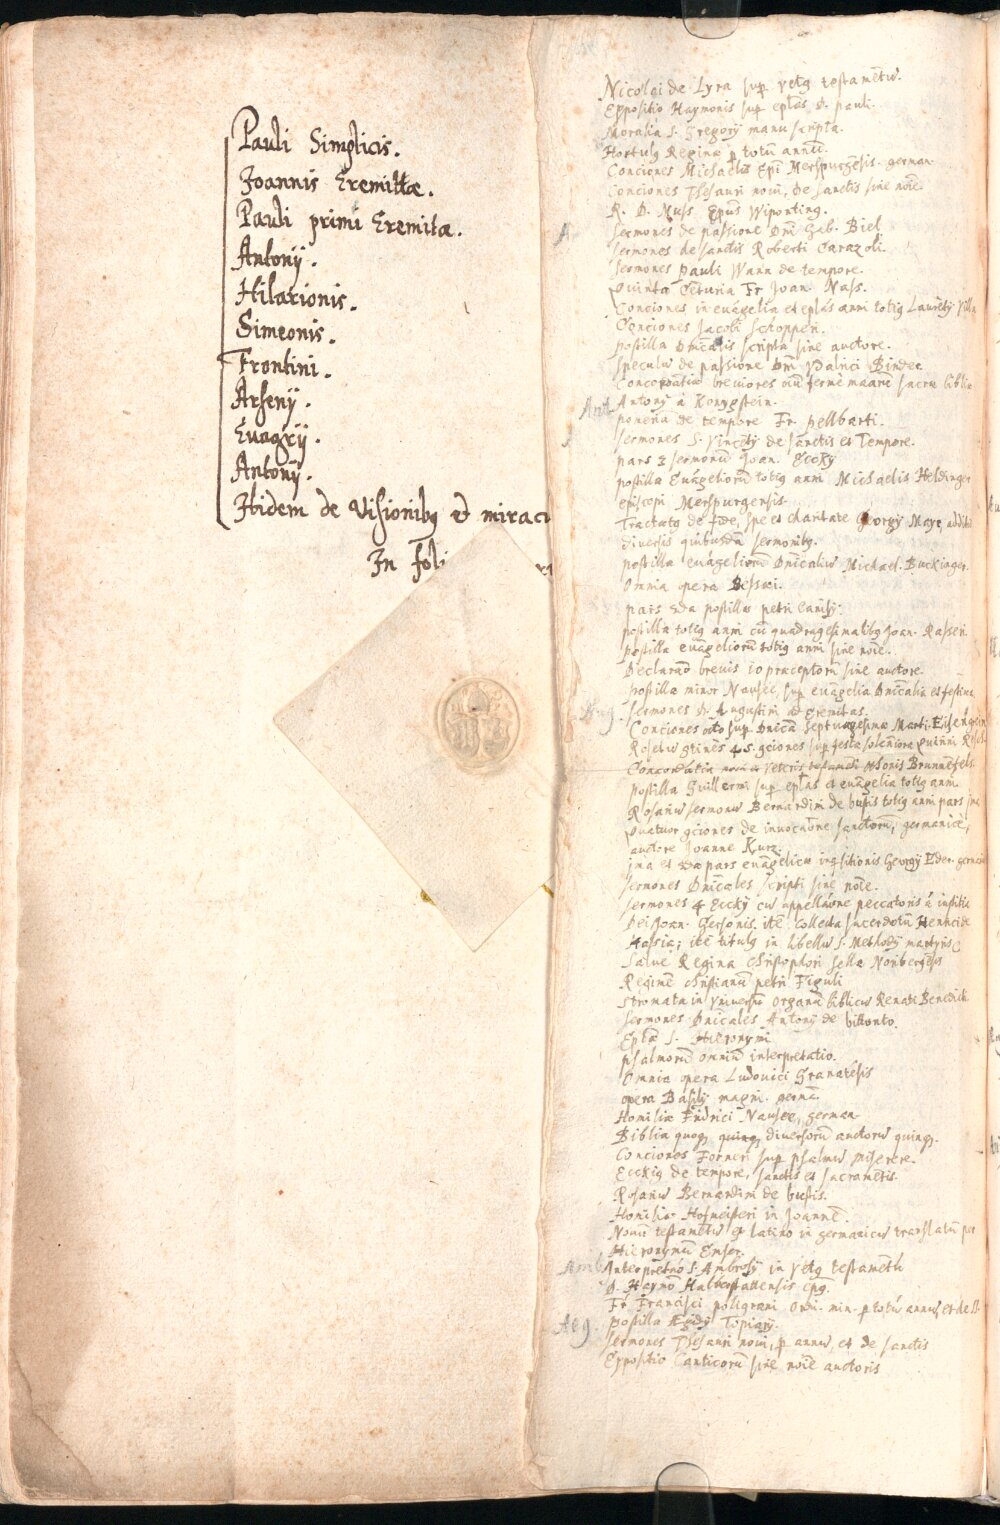 Pauli Simplicis.
Joannis Eremittæ.
Pauli primi Eremitæ.
Antonij.
Hilarionis.
Simeonis.
Frontini.
Arsenij.
Euagrij.
Antonij.
Ibidem de Visionibꝫ et mirac
In foli
Nicolai de Lyra sup vetꝫ testamētū.
Expositio Haymonis sup eplas D. pauli.
Moralia S. Gregorij manu scripta.
Hortulꝫ Reginæ p totū annū.
Conciones Michaelis Epī Merspurgēsis. german
Conciones Thesauri noui, de sanctis sine noīe.
R. D. Nuss Epūs
Sermones de passione Dnī Gab. Biel
Sermones de sanctis Roberti Carazoli
Sermones pauli Wann de tempore.
Quinta Cēturia Fr Joan Nass.
Conciones in euāgelia et eplas anni totiꝫ Laurētij
Conciones Jacobi Schopperi.
postilla Dnīcalis scripta sine auctore.
Speculū de passione Dnī Vdalrici Binder
Concordātiæ breuiores sacræ bibliæ
Ant Antonij à Konygstein.
de tempore Fr. pellbarti.
Sermones S. Vincētij de sanctis et Tempore.
pars 3 sermonū Joan. Eccky
postilla Euāgeliorū totiꝫ anni Michaelis Heldinger
episcopi Merspurgensis.
Tractatꝫ de fide, spe et charitate Georgij Maye,
diuersis quibusdā sermonibꝫ.
postilla euāgeliorū Dnīcaliū Michael. Buckinger.
Omnia opera Bessæi.
pars 2da postillæ petri Canisij.
postilla totiꝫ anni cū quadragesimalibꝫ Joan. Rasseri
postilla euāgeliorū totiꝫ anni sine noīe.
Declarāo breuis 10 præceptorū sine auctore.
postilla minor Nauseæ, sup euāgelia Dnīcalia et festiua
Aug. Sermones D. Augustini ad Eremitas.
Conciones octo sup Dnīcā Septuagesimæ Marti. Eisengrein
sup festa solēniora
Concordātia noui et veteris testamēti Othonis Brunnēfels.
postilla Guillermi sup eplas et euāgelia totiꝫ anni
Rosariū sermonū Bernardini de bustis totiꝫ anni pars
Quatuor cciones de inuocatōne sanctorū, germanicè,
auctore Joanne Kurz.
ima et 2da pars euāgelicæ inqsitionis Georgij Eder.
Sermones Dnīcales scripti sine noīe.
Sermones 4 Eccky cū appellatōne peccatoris à iustitia
Dei Joan. Gersonis. itē collecta sacerdotū Henrici de
Hassia; itē titulꝫ in libellū S. Methodij martyris
Salue Regina Christophori Sella Noribergēsis
Reginē Christianū petri Figuli
Stromata in vniuersū organū biblicū Renati Benedicti
Sermones Dnīcales Antonij de bittonto.
Eplæ S. Hieronymi
psalmorū omniū interpretatio.
Omnia opera Ludouici Granatēsis
opera Basilij magni. germā.
Homiliæ Fridrici Nauseæ, german
Biblia quoqꝫ quinqꝫ diuersorū auctorū quinqꝫ.
Conciones Forneri sup psalmū Miserere.
Ecckiꝫ de tempore, sanctis et sacramētis.
Rosariū Bernardini de bustis.
Homiliæ Hofmeisteri in Joannē.
Nouū testamētū ex latino in germanicū translatū per
Hieronymū Emser.
Amb. Interpretatio S. Ambrosij in vetꝫ testamētū
D. Haymō Halberstattensis Epꝫ.
Fr. Francisci poligrani ordi. min. p totū annū, et de
Aeg. postilla Ægidij Topiarij.
Sermones Thesauri noui, p annū, et de sanctis
Expositio Canticorū sine noīe auctoris